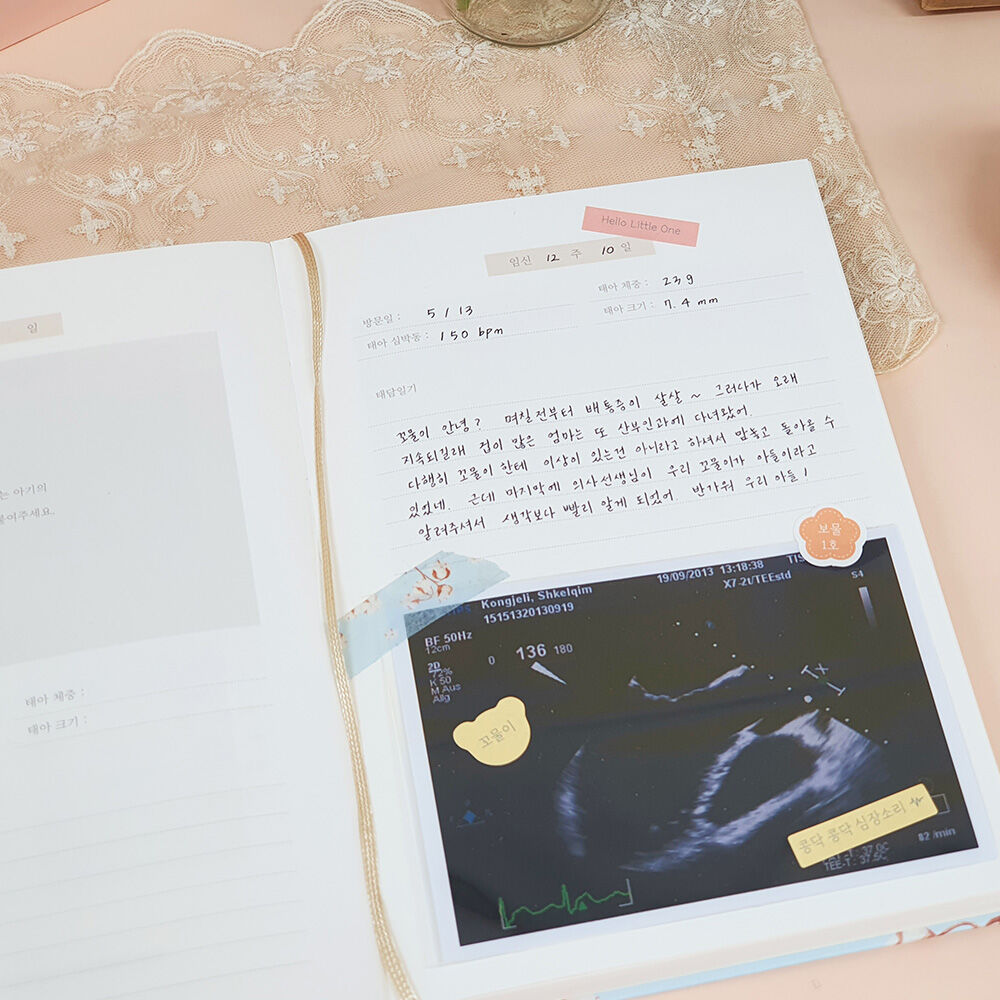 Hello Little One
임신 12 주 10 일
방문일 : 5 / 13
태아 체중 : 23g
태아 심박동 : 150 bpm
태아 크기 : 7.4 mm
태담일기
꼬물이 안녕? 며칠전부터 배통증이 살살 ~ 그러다가 오래
지속되길래 겁이 많은 엄마는 또 산부인과에 다녀왔어.
다행히 꼬물이 한테 이상이 있는건 아니라고 하셔서 맘놓고 돌아올 수
있었네. 근데 마지막에 의사선생님이 우리 꼬물이가 아들이라고
알려주셔서 생각보다 빨리 알게 되었어. 반가워 우리 아들!
보물
1호
19/09/2013 13:18:38
X7-2t/TEEstd
S4
Kongjeli, Shkelqim
15151320130919
BF 50Hz
12cm
2D
72%
K 50
M Aus
Allg
0 136 180
꼬물이
콩닥 콩닥 심장소리
82 /min
TEE-T: 37.5C
일
는 아기의
붙여주세요.
태아 체중 :
태아 크기 :